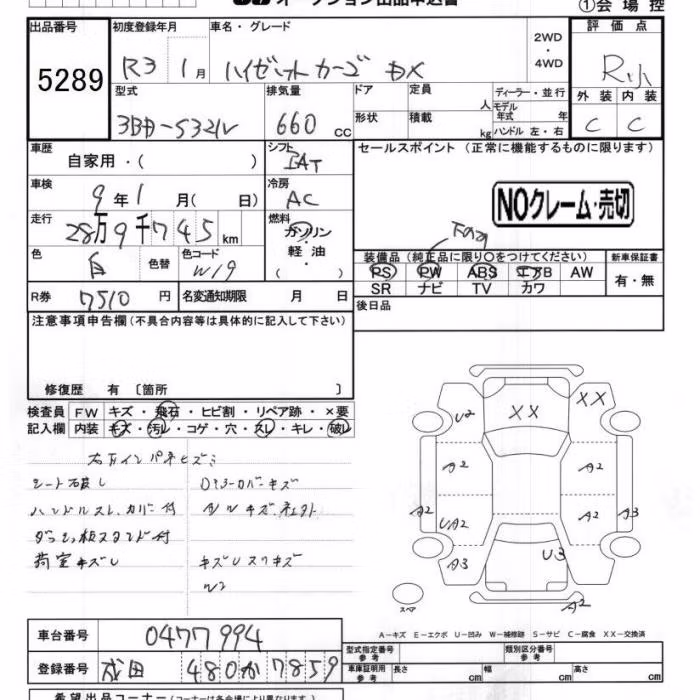 ①会場控
出品番号 初度登録年月 車名・グレード 2WD・4WD 評価点
5289 R3 1月 ハイゼットカーゴ DX R小
型式 排気量 ドア 定員 人 ディーラー・並行 外装 内装
3BD-S321V 660cc 形状 積載 kg モデル年式 年 ハンドル 左・右 C C
車歴 自家用・( ) シフト IAT セールスポイント(正常に機能するものに限ります)
車検 9年1月( 日) 冷房 AC
NOクレーム・売切
走行 28万9千745km 燃料 ガソリン・軽油・( )
色 白 色替 色コード W19
装備品(純正品に限り○をつけてください) 新車保証書
PS PW ABS エアB AW 有・無
SR ナビ TV カワ
R券 7510円 名変通知期限 月 日 後日品
注意事項申告欄(不具合内容等は具体的に記入して下さい)
修復歴 有〔箇所 〕
検査員 FW キズ・飛石・ヒビ割・リペア跡・×要
記入欄 内装 キズ・汚レ・コゲ・穴・スレ・キレ・破レ
シート破レ
ハンドルスレ、カバー付
荷室キズU
キズUスリキズ
W2
XX XX
U2
A2 A2
A2 UA2 A2 A3
A3 U3
A2
スペア
A-キズ E-エクボ U-凹み W-補修跡 S-サビ C-腐食 XX-交換済
車台番号 0477994
型式指定番号 参考 類別区分番号 参考
登録番号 成田 480か7859
車庫証明用 参考 長さ cm 幅 cm 高さ cm
希望出品コーナー(コーナーは各会場により異なります)